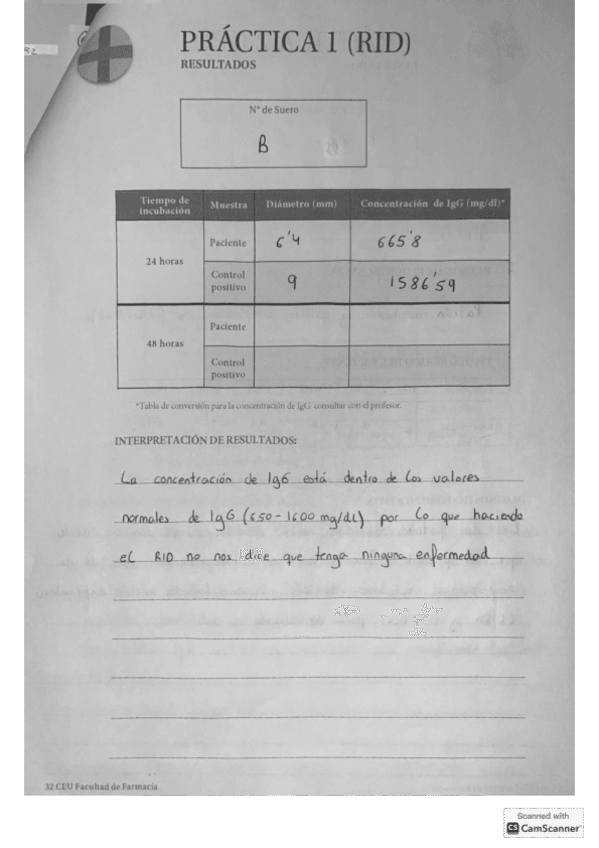 PRÁCTICA 1 (RID)
RESULTADOS
Nº de Suero
B
Tiempo de incubación Muestra Diámetro (mm) Concentración de IgG (mg/dl)*
24 horas
Paciente 6'4 665'8
Control positivo 9 1586'59
48 horas
Paciente
Control positivo
*Tabla de conversión para la concentración de IgG: consultar con el profesor.
INTERPRETACIÓN DE RESULTADOS:
La concentración de IgG está dentro de los valores
normales de IgG (650-1600 mg/dL) por lo que haciendo
el RID no nos dice que tenga ninguna enfermedad
32 CEU Facultad de Farmacia
Scanned with
CS CamScanner